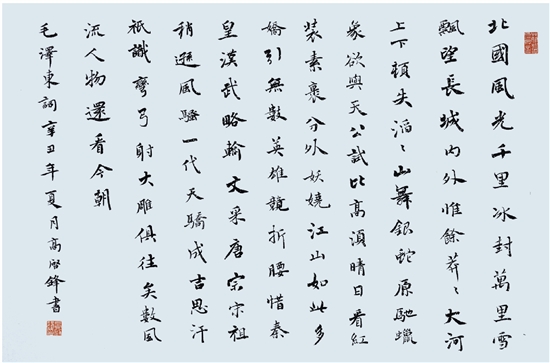 北國風光千里冰封萬里雪
飄望長城內外惟餘莽〻大河
上下頓失滔〻山舞銀蛇原馳蠟
象欲與天公試比高須晴日看紅
裝素裹分外妖嬈江山如此多
嬌引無數英雄競折腰惜秦
皇漢武略輸文采唐宗宋祖
稍遜風騷一代天驕成吉思汗
祇識彎弓射大雕俱往矣數風
流人物還看今朝
毛澤東詞辛丑年夏月高啟鋒書